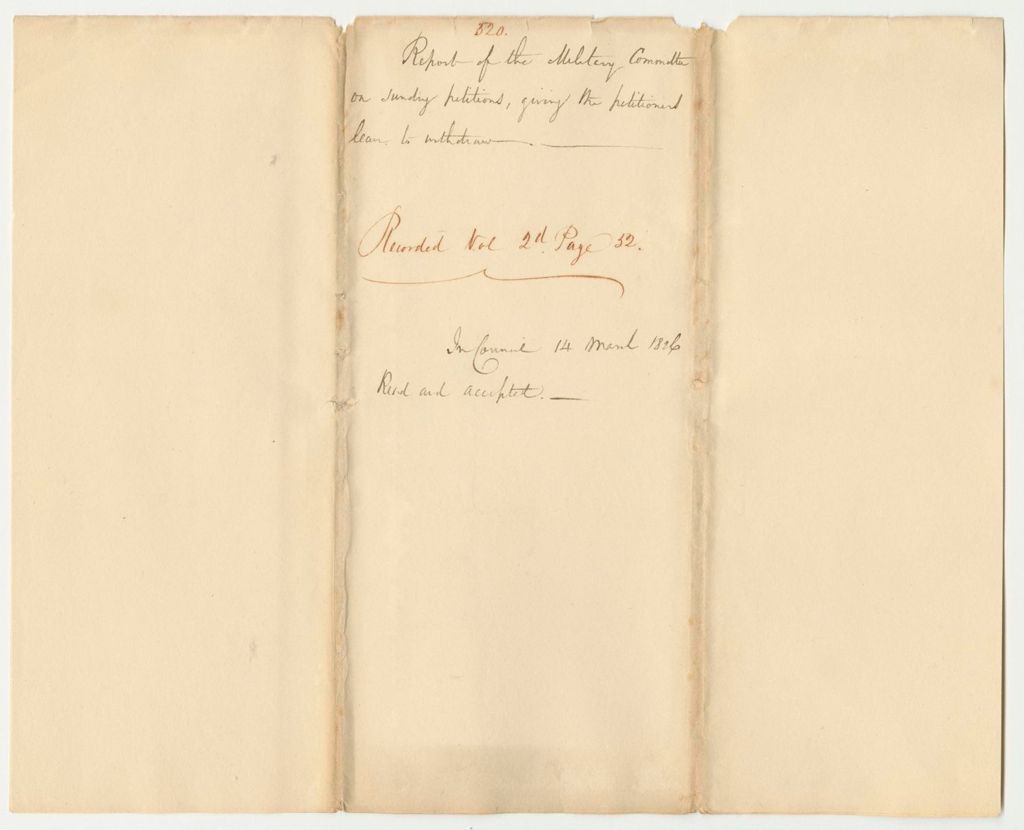 520.
Report of the Military Committee
on sundry petitions, giving the petitioners
leave to withdraw.
Recorded Vol 2d. Page 52.
In Council 14 March 1826
Read and accepted.